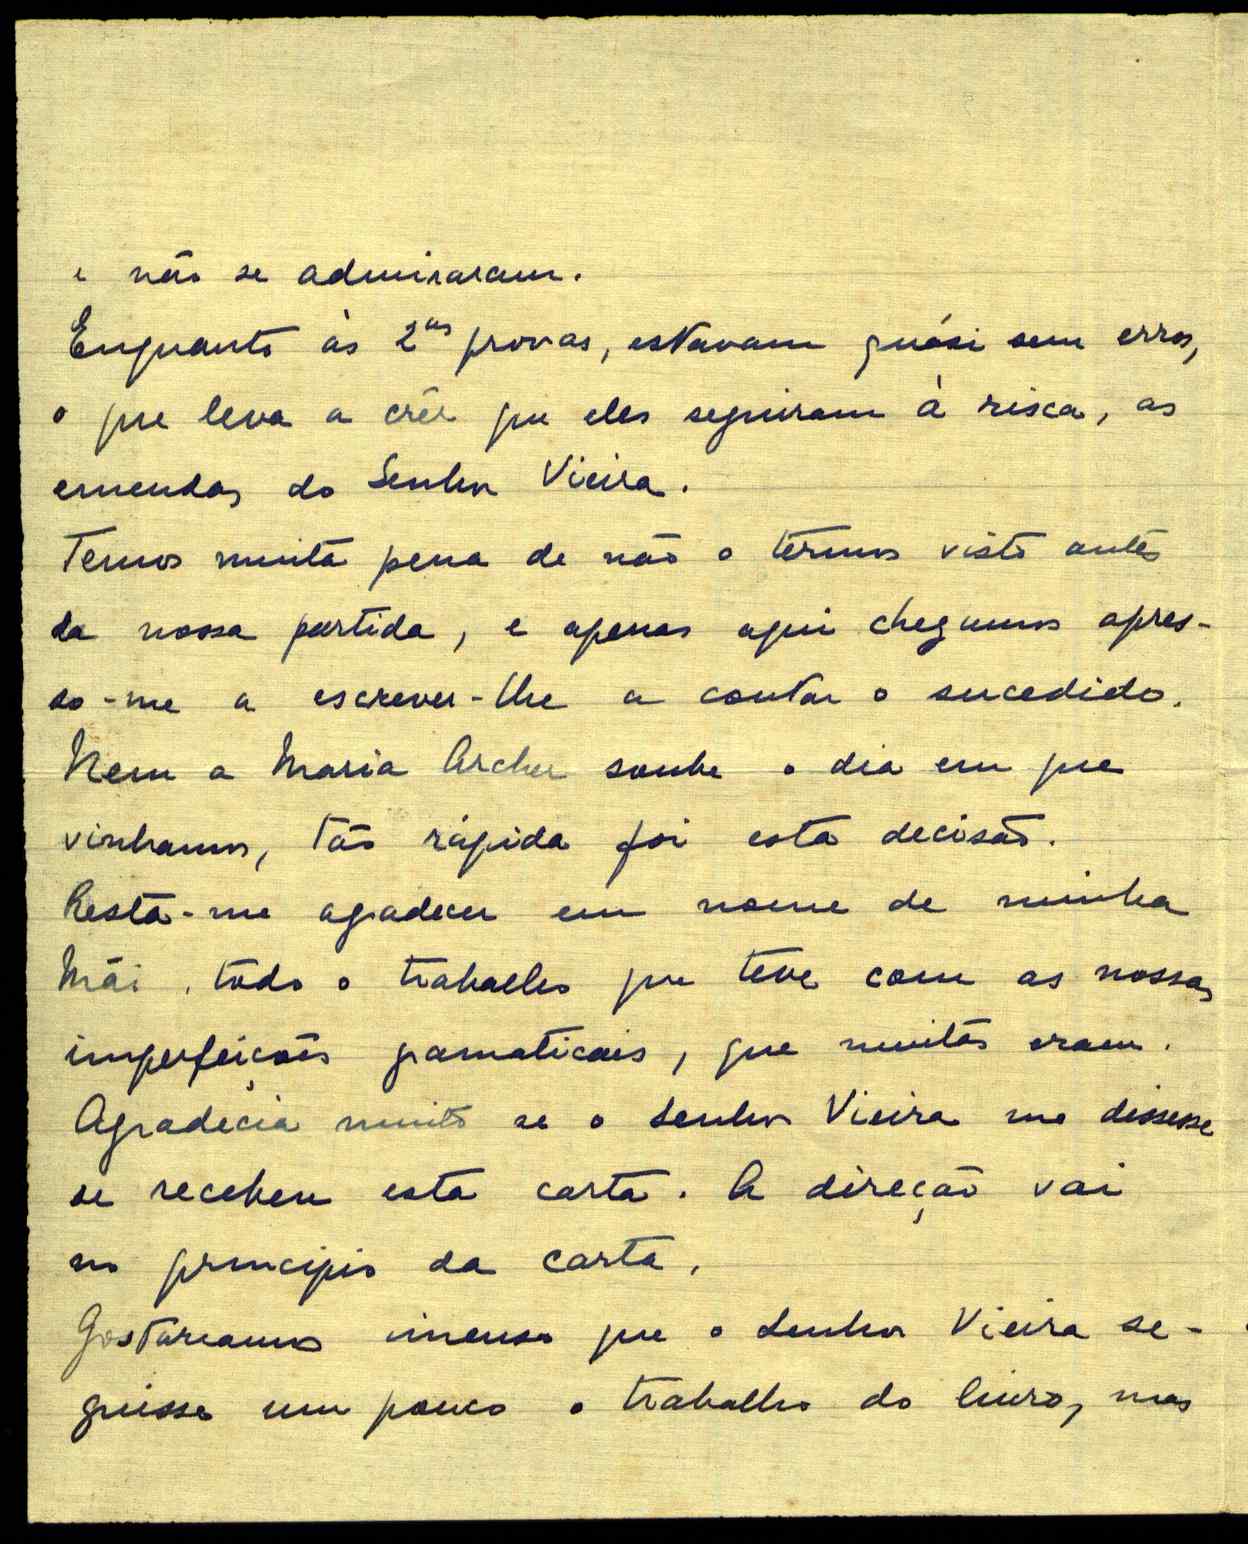 e não se admiraram.
Enquanto às 2as provas, estavam quási sem erros,
o que leva a crêr que eles seguiram à risca, as
emendas do Senhor Vieira.
Temos muita pena de não o têrmos visto antes
da nossa partida, e apenas aqui chegamos apres-
so-me a escrever-lhe a contar o sucedido.
Nem a Maria Archer soube o dia em que
vinhamos, tão rápida foi esta decisão.
Resta-me agradecer em nome de minha
Mãi, todo o trabalho que teve com as nossas
imperfeições gramaticais, que muitas eram.
Agradecia muito se o Senhor Vieira me dissesse
se recebeu esta carta. A direção vai
no principio da carta.
Gostariamos imenso que o Senhor Vieira se-
guisse um pouco o trabalho do livro, mas